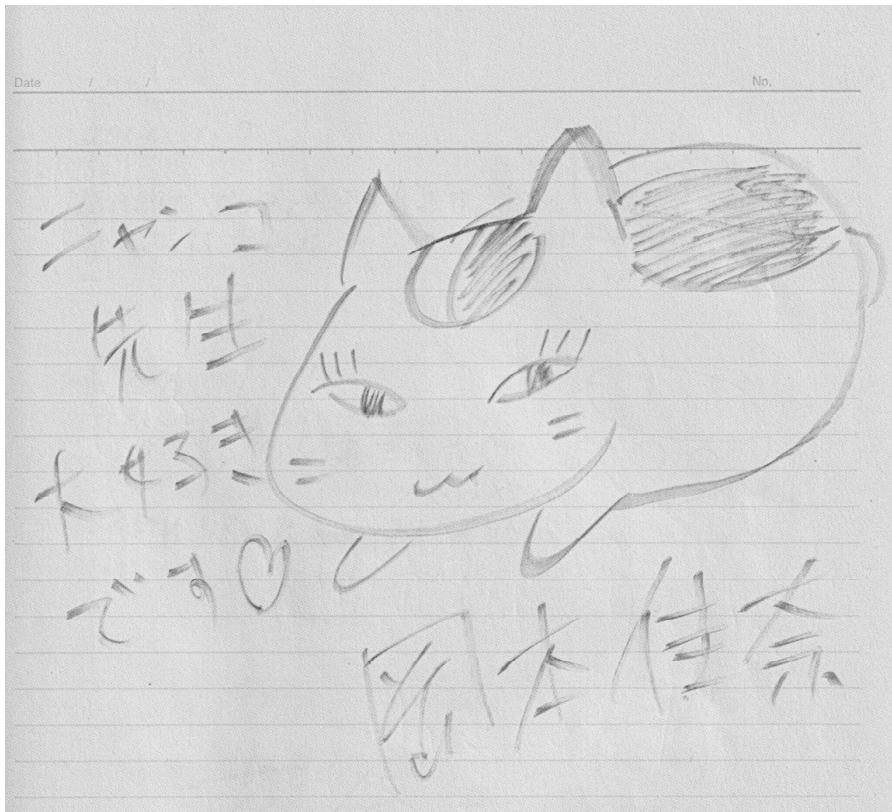 Date / /
No.
ニャンコ
先生
大好き
です♡
岡本佳奈